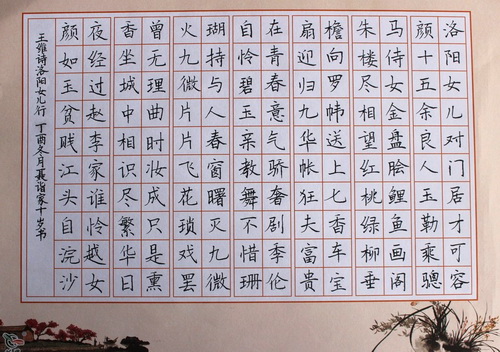 洛阳女儿对门居才可容
颜十五余良人玉勒乘骢
马侍女金盘脍鲤鱼画阁
朱楼尽相望红桃绿柳垂
檐向罗帏送上七香车宝
扇迎归九华帐狂夫富贵
在青春意气骄奢剧季伦
自怜碧玉亲教舞不惜珊
瑚持与人春窗曙灭九微
火九微片片飞花琐戏罢
曾无理曲时妆成只是熏
香坐城中相识尽繁华日
夜经过赵李家谁怜越女
颜如玉贫贱江头自浣沙
王维诗洛阳女儿行 丁酉冬月聂诣家十岁书